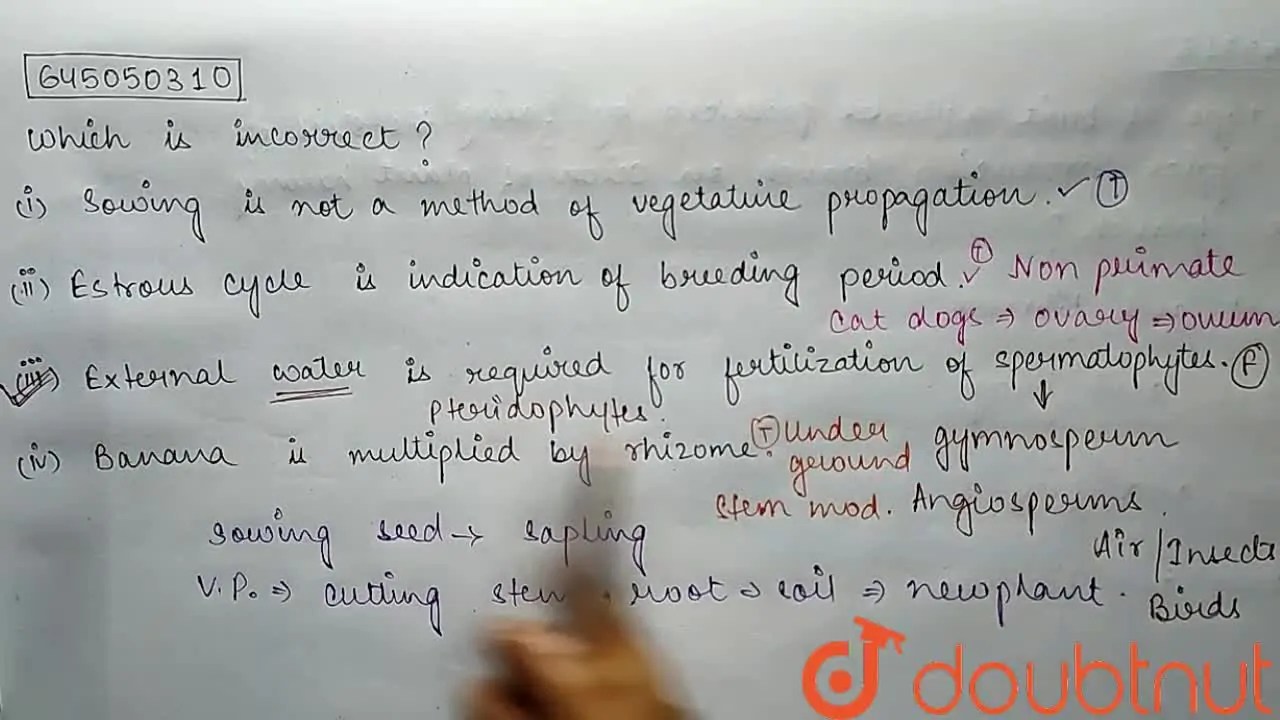 645050310
Which is incorrect?
(i) Sowing is not a method of vegetative propagation. ✓ T
(ii) Estrous cycle is indication of breeding period. ✓ T Non primate
cat dogs ⇒ ovary ⇒ ovum
(iii) External water is required for fertilization of spermatophytes. F
pteridophytes. ↓
(iv) Banana is multiplied by rhizome. T Under ground gymnosperm
stem mod. Angiosperms.
Sowing seed → sapling
Air / Insects
V.P. ⇒ cutting root ⇒ soil ⇒ new plant.
Birds
doubtnut